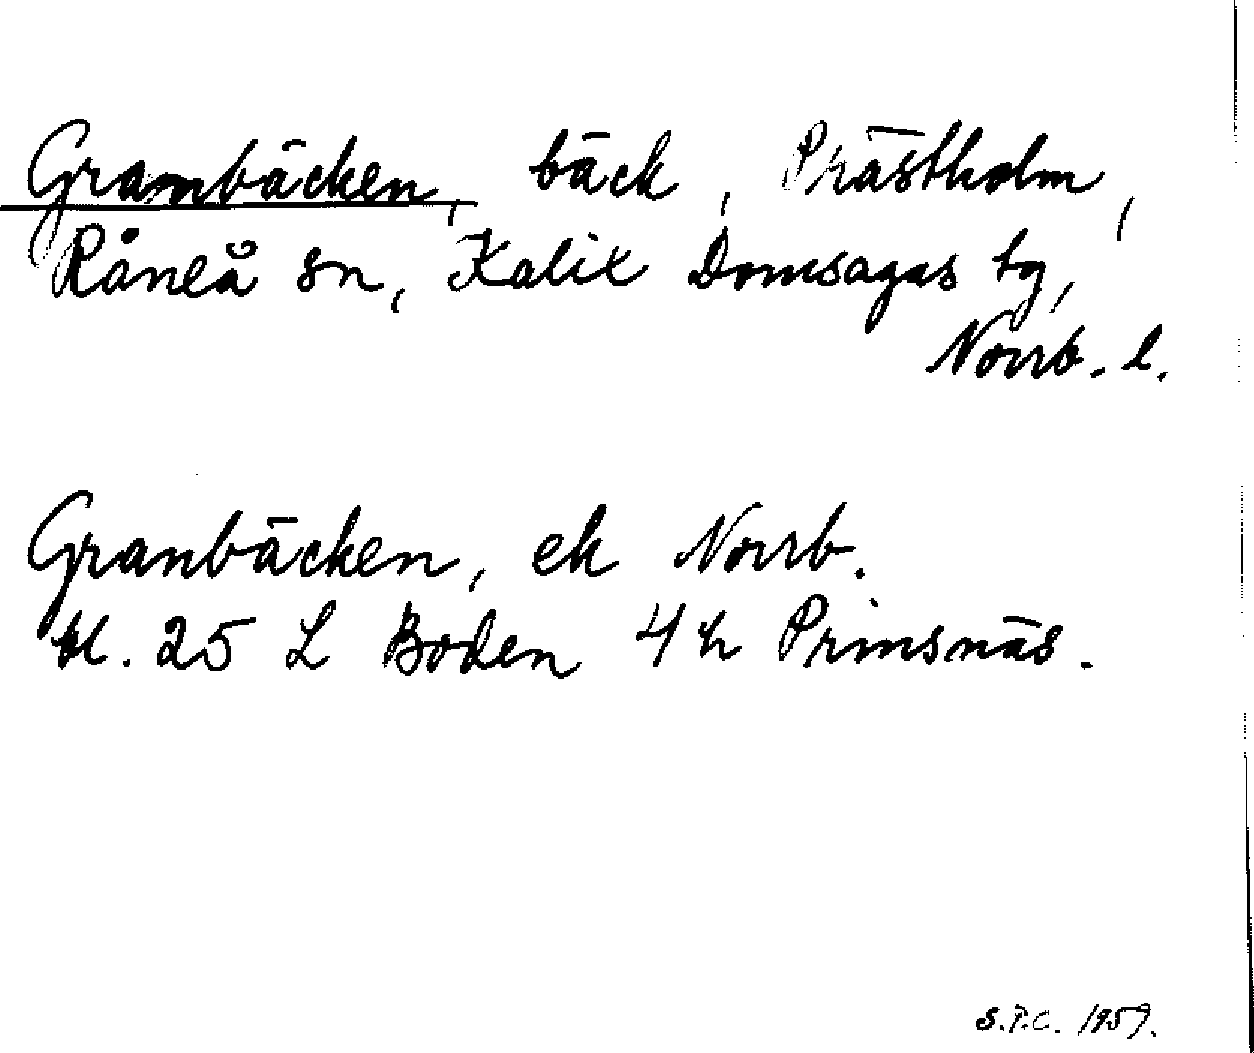 Granbäcken, bäck, Prästholm,
Råneå sn, Kalix Domsagas tg,
Norrb. l.
Granbäcken, ek Norrb.
bl. 25 L Boden 4 h Prinsnäs.
S.P.C. 1959.